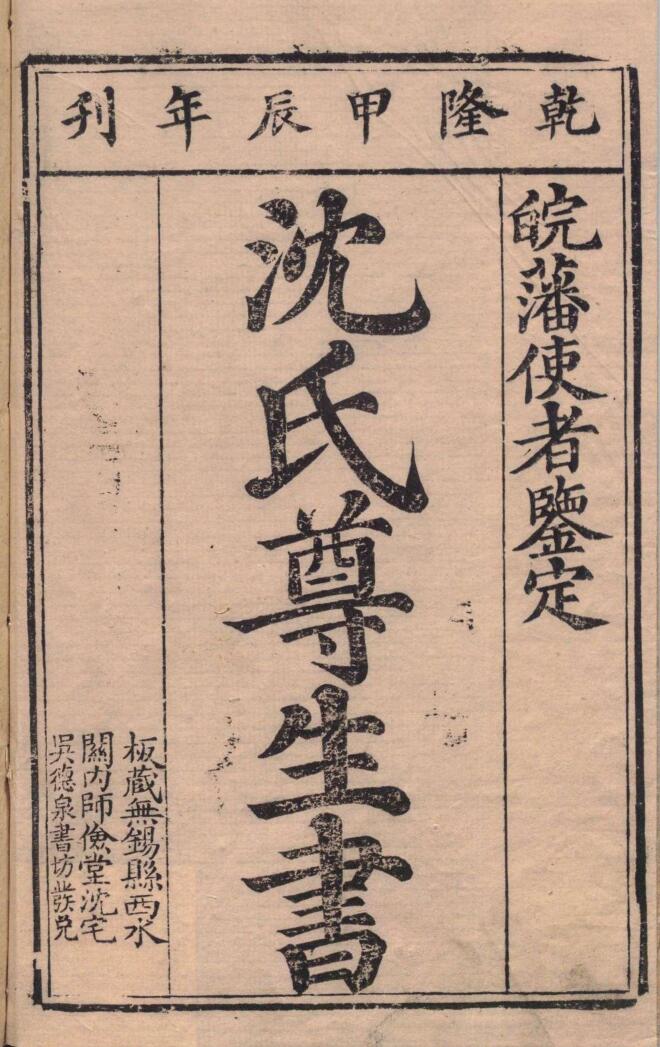 乾隆甲辰年刊
皖藩使者鑒定
沈氏尊生書
板藏無錫縣西水
關內師儉堂沈宅
吳德泉書坊發兌